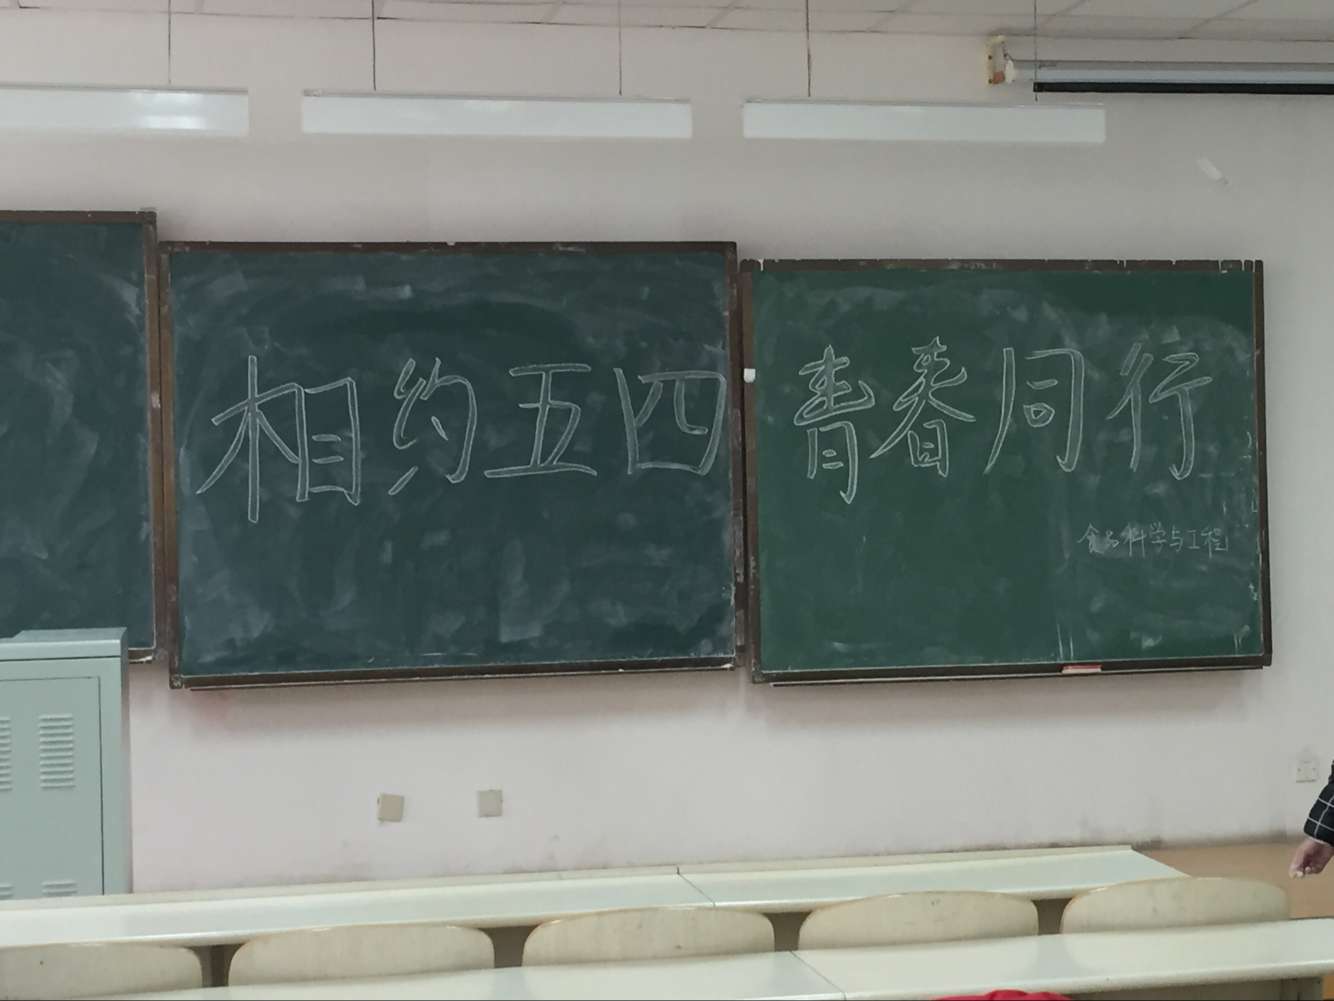 相约五四
青春同行
食品科学与工程